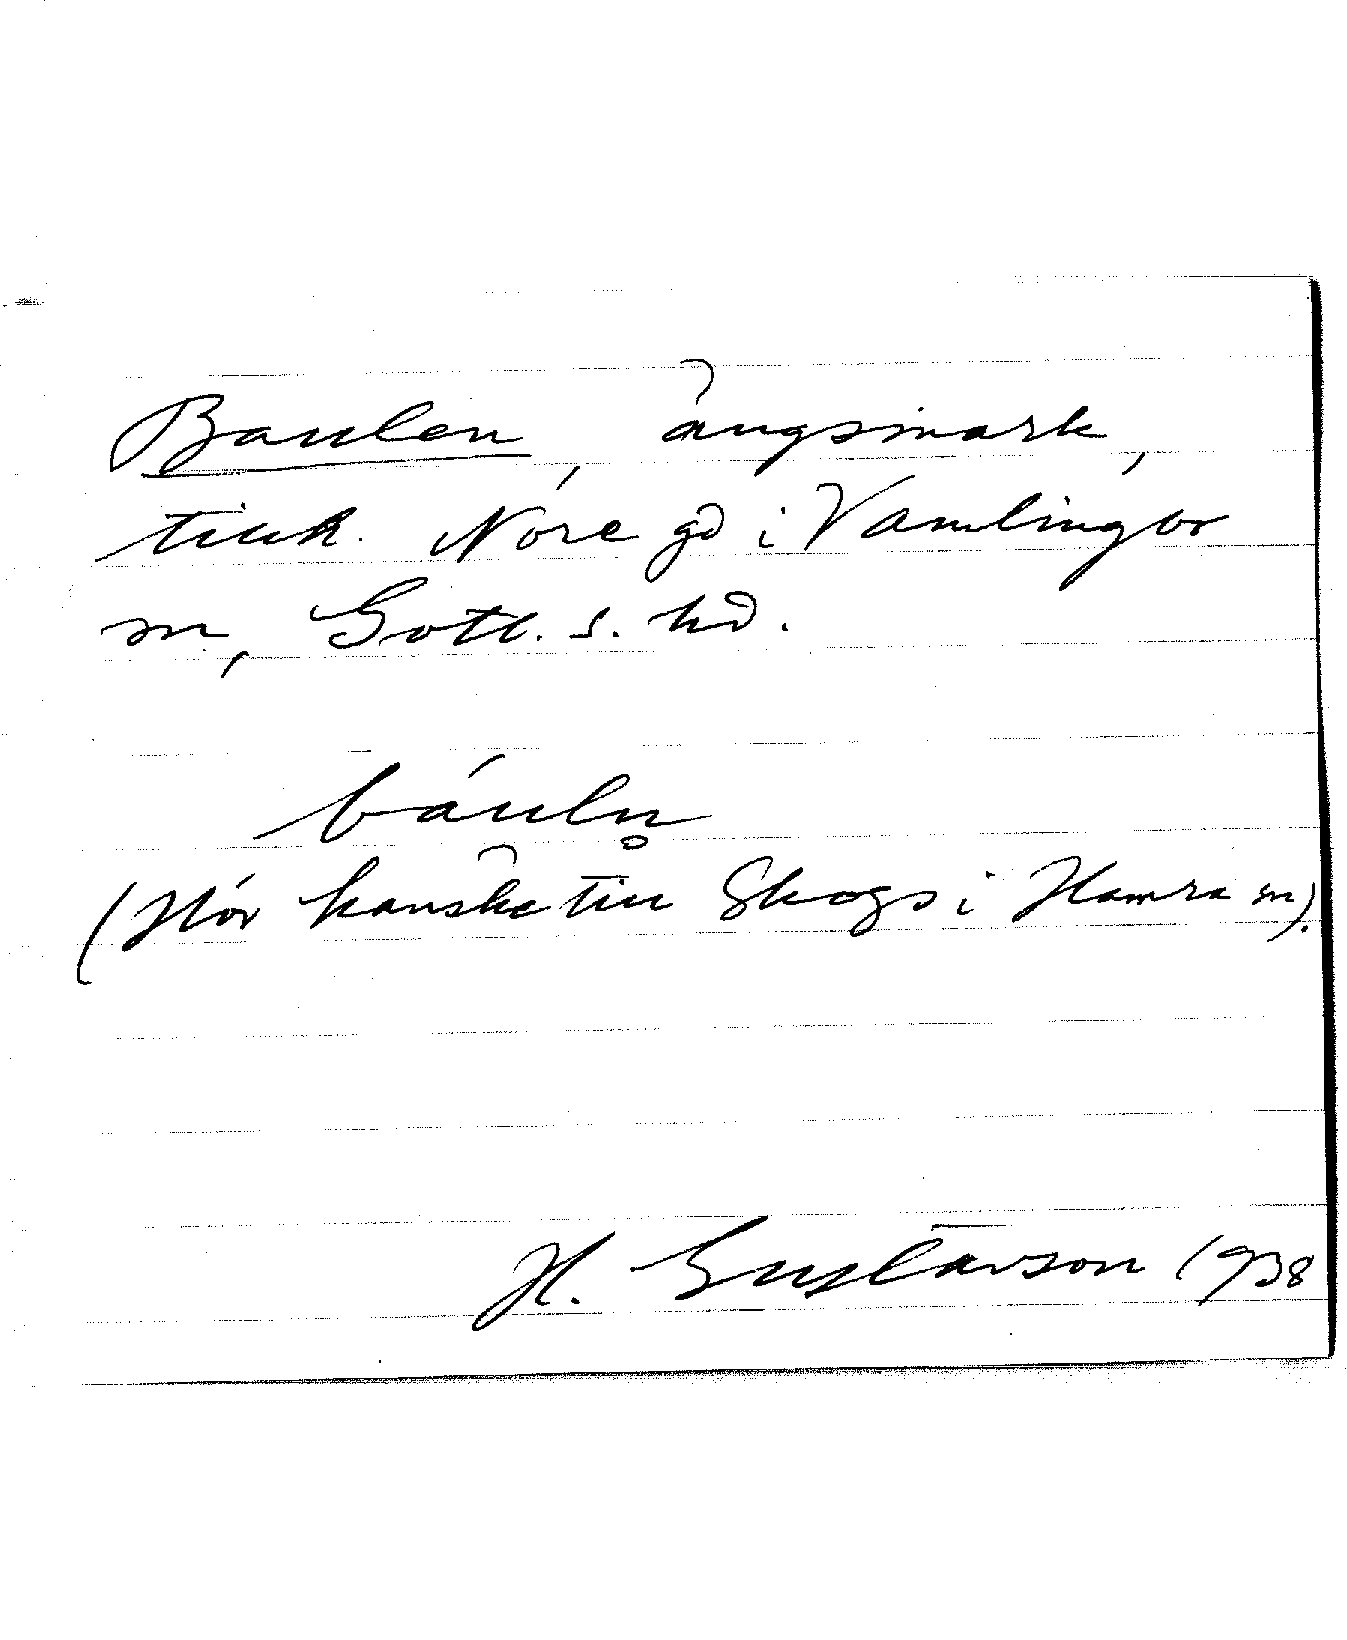 Baulen, ängsmark,
tillh. Nore gd i Vamlingbo
sn, Gotl. s. hd.
báuln̥
(Hör kanske till Skogs i Hamra sn).
H. Gustavson 1938